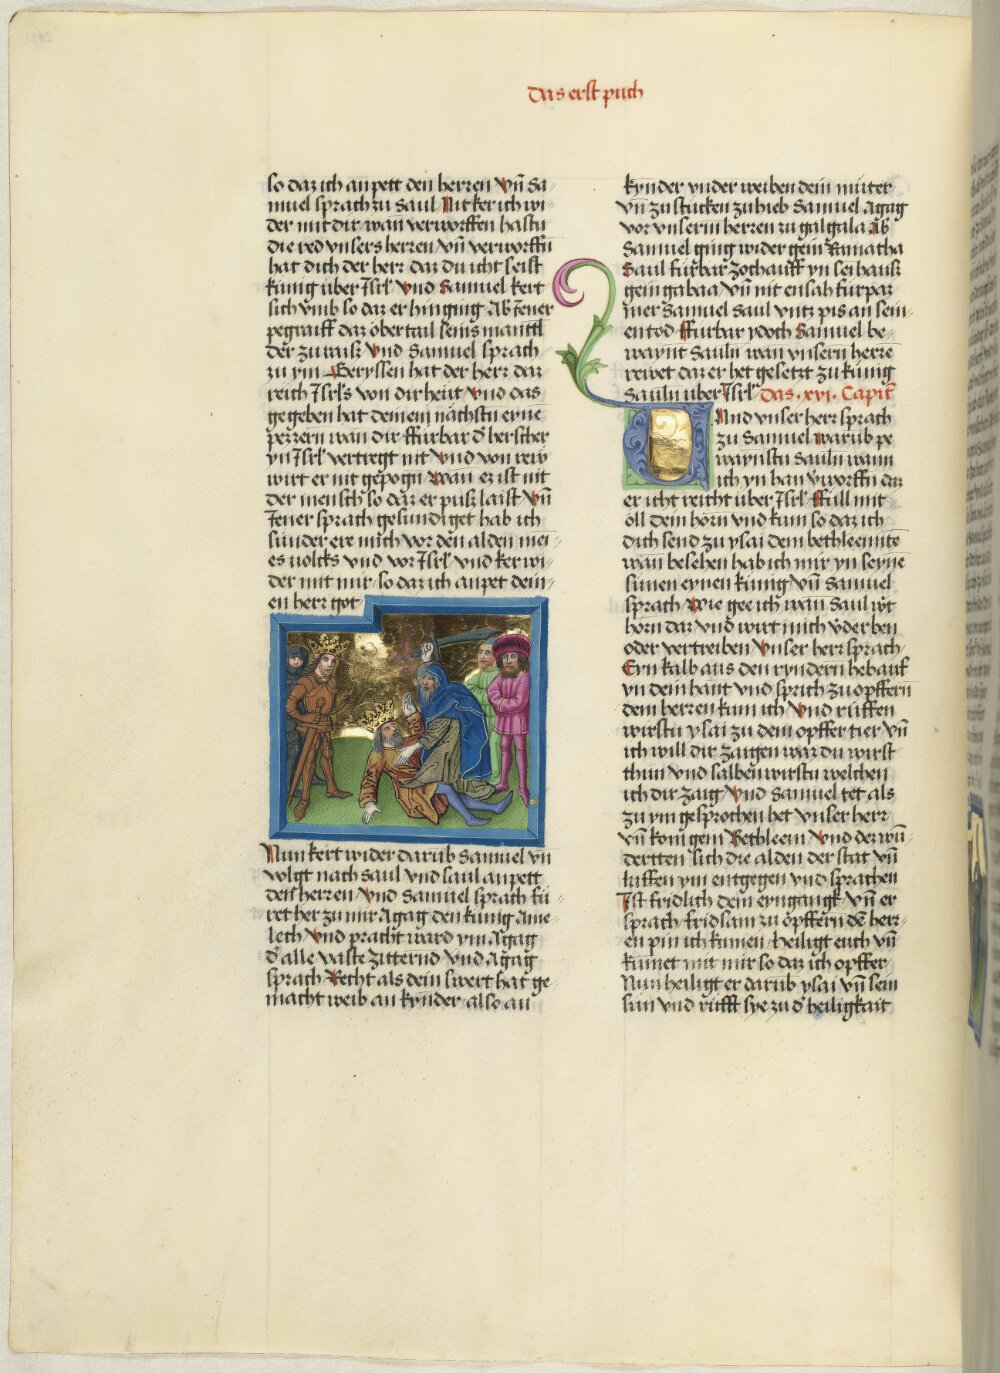 Das erst puch
so daz ich anpett den herren Vn̄ Sa
muel sprach zu Saul Nit ker ich wi
der mit dir wan verworffen hastu
die red vnsers herren vn̄ verworffn
hat dich der herr daz du icht seist
kunig über Isrl Vnd Samuel kert
sich vmb so daz er hinging Ab Jener
pegraiff daz öbertail seins mantel
der zu raisz Vnd Samuel sprach
zu ym Geryssen hat der herr daz
reich Isrls von dir heut Vnd das
gegeben hat deinem nächstn eyne
pezzern wan dir Furbar d' herscher
yn Isrl vertregt nit Vnd von rew
wirt er nit gepogn Wan er ist nit
der mensch so daz er pusz laist Vn̄
Jener sprach gesundiget hab ich
sunder ere mich vor den alden mei
es volcks vnd vor Isrl vnd ker wi
der mit mir so daz ich anpet dein
en herr got
Nun kert wider darub Samuel vn
volgt nach Saul vnd saul anpett
den herren Vnd Samuel sprach fu
ret her zu mir Agag den kunig Ame
lech Vnd pracht ward ym Agag
d' alle vaste zitternd vnd Agag
sprach Recht als dein swert hat ge
macht weib an kynder also an
kynder vnder weiben dein muter
vn̄ zu stucken zuhieb Samuel Agag
vor vnserm herren zu galgala Ab
Samuel ging wider gein Ramatha
Saul furbar zoch auff yn sei hausz
gein gabaa Vn̄ nit ensah furpaz
mer Samuel Saul vntz pis an sein
en tod Furbar ydoch Samuel be
waynt Sauln wan vnsern herre
rewet daz er het gesetzt zu kunig
Sauln uber Isrl Das .xvi. Capitl
Und vnser herr sprach
zu Samuel warub pe
waynstu Sauln wann
ich yn han v'worffn daz
er icht reicht uber Isrl Full mit
öll dein horn vnd kum so daz ich
dich send zu ysai dem bethleemite
wan besehen hab ich mir yn seyne
sunen eynen kunig Vn̄ Samuel
sprach Wie gee ich wan Saul w't
horn daz vnd wirt mich v'derben
oder vertreiben Vnser herr sprach
Eyn kalb aus den ryndern heb auf
yn dein hant vnd sprich zu opffern
dem herren kum ich Vnd ruffen
wirstu ysai zu dem opffer tier vn̄
ich will dir zaigen waz du wirst
thun vnd salben wirstu welchen
ich dir zaig Vnd Samuel tet als
zu ym gesprochen het vnser herr
vn̄ kom gein Bethleem Vnd dez wu
dertten sich die alden der stat vn̄
luffen ym entgegen vnd sprachen
Ist fridlich dein eyngangk vn̄ er
sprach fridsam zu opffern dē herr
en pin ich kumen heiligt euch vn̄
kumet mit mir so daz ich opffer
Nun heiligt er darub ysai vn̄ sein
sun vnd rufft sye zu d' heiligkait